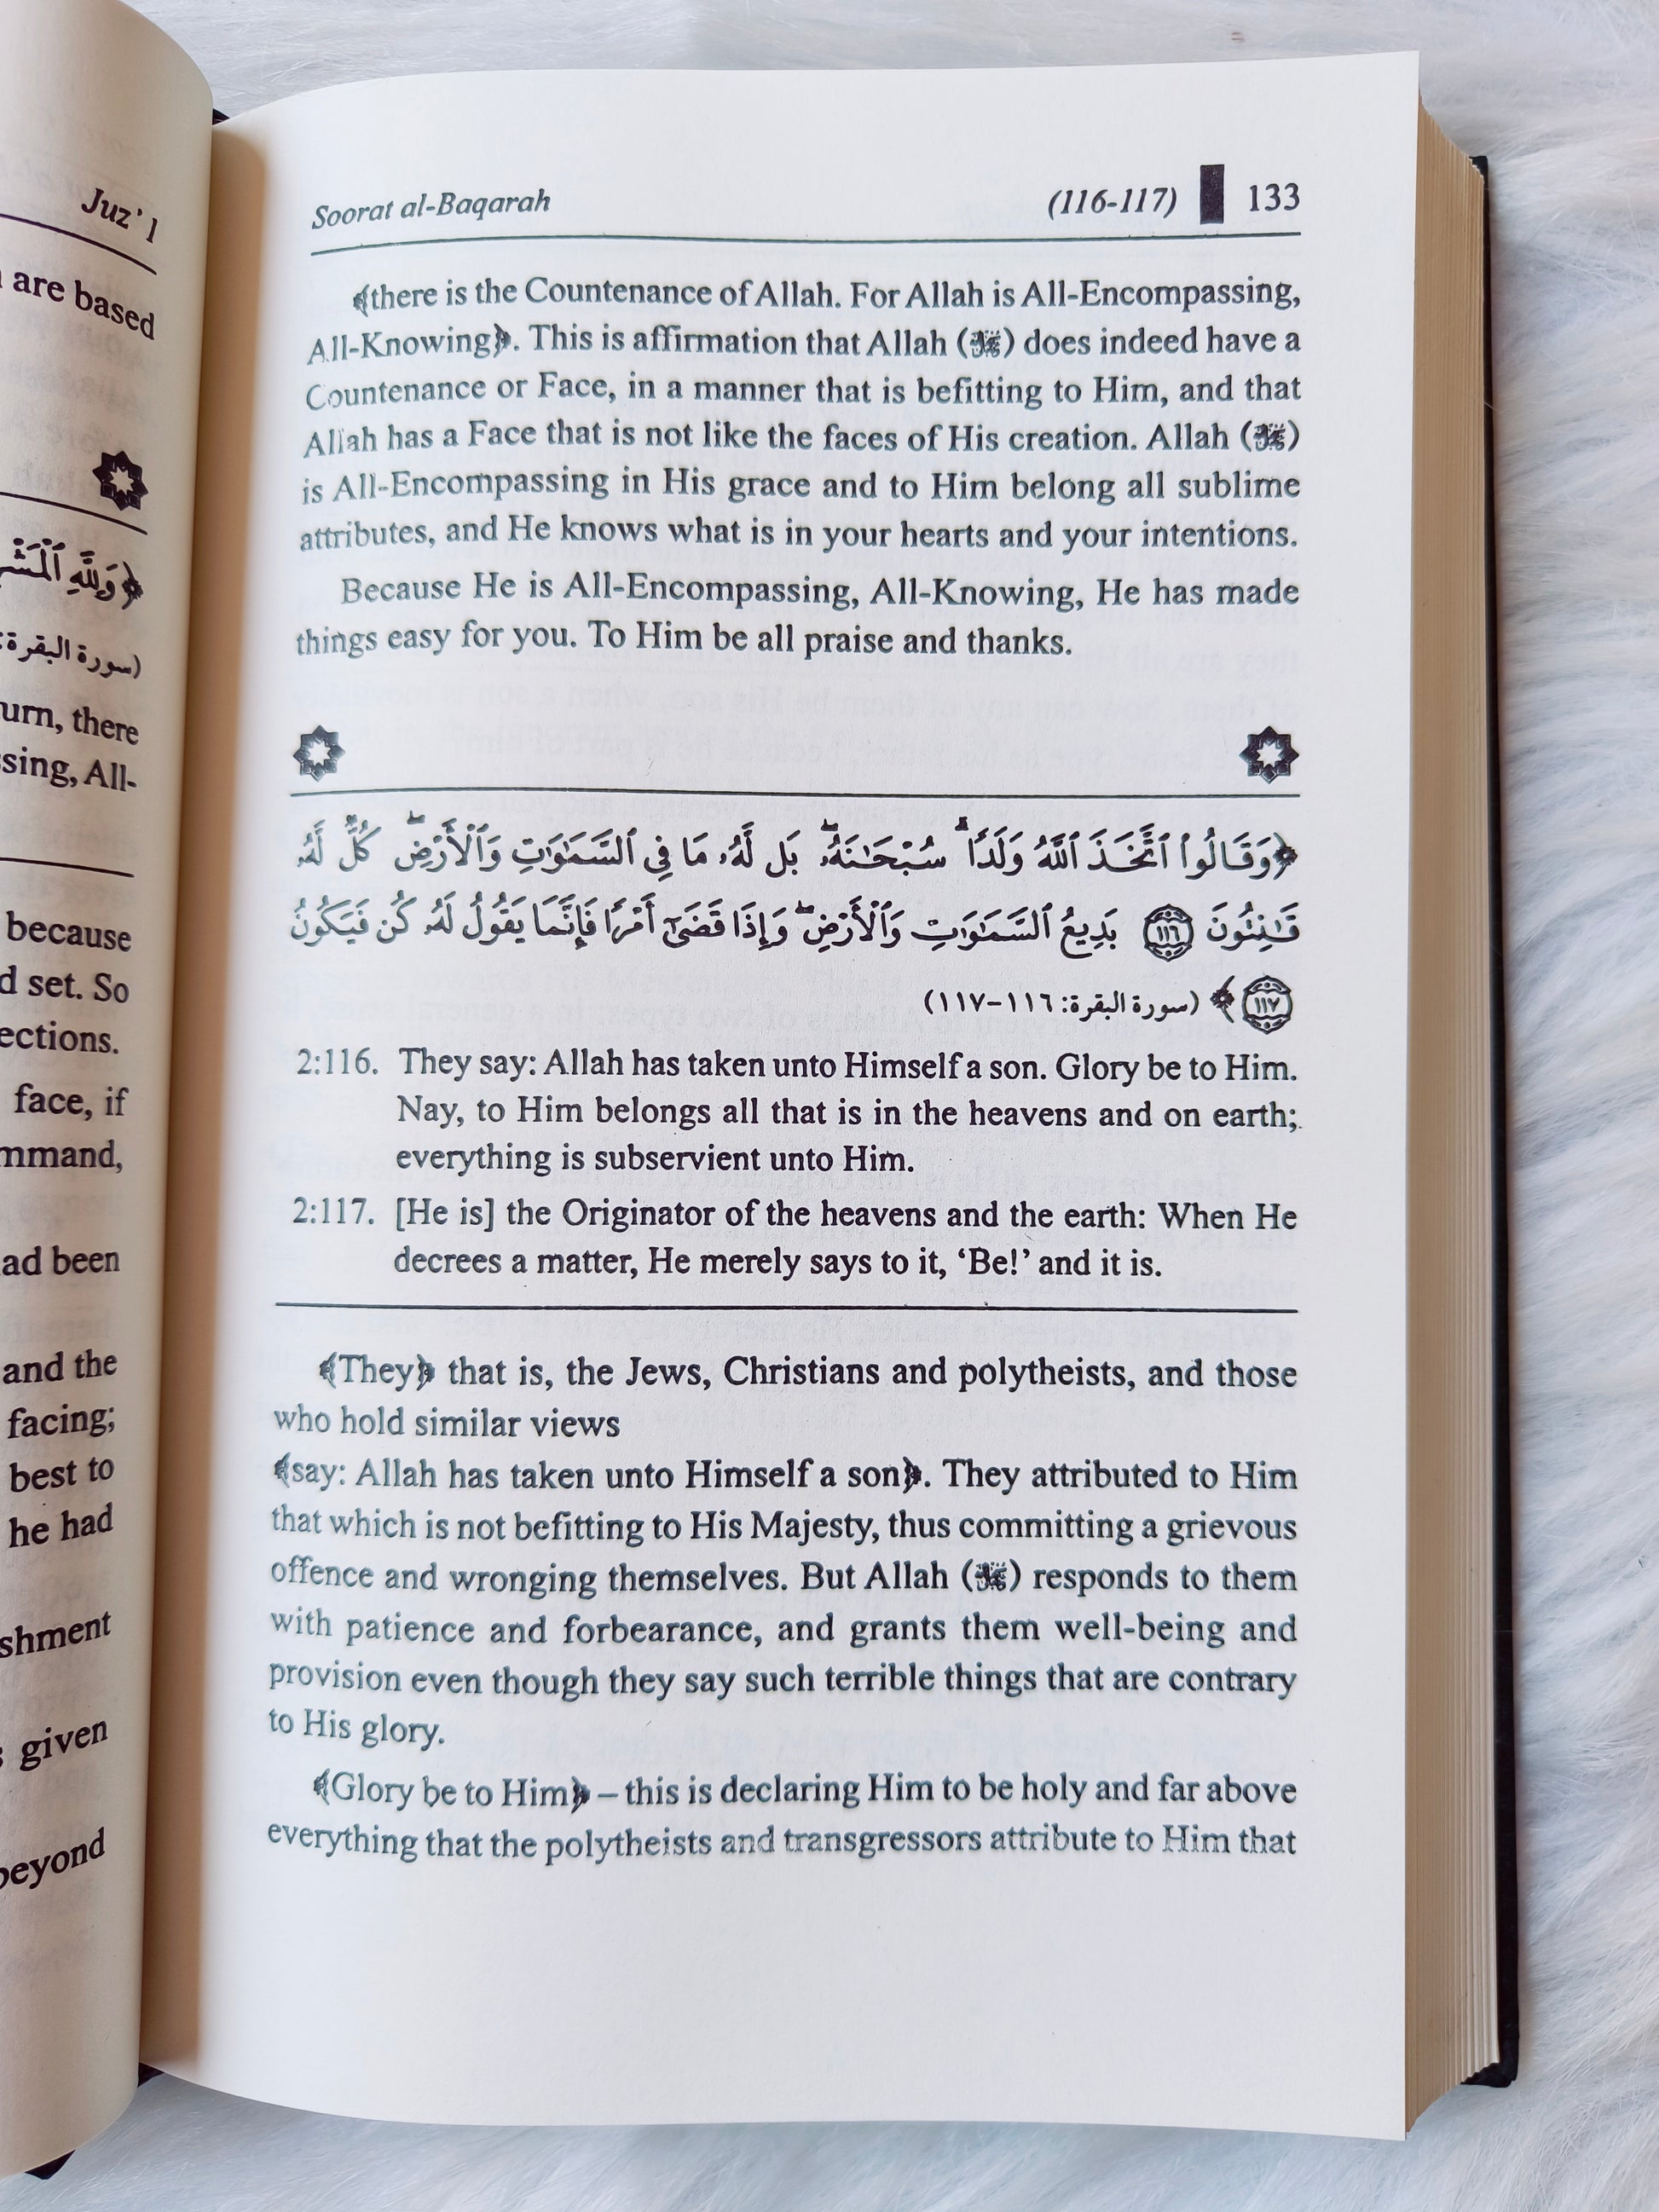 Juz’ 1
are based
﴿وَلِلَّهِ ٱلْمَشْ
(سورة البقرة:
urn, there
sing, All-
because
d set. So
ections.
face, if
mmand,
ad been
and the
facing;
best to
he had
shment
given
beyond
Soorat al-Baqarah (116-117) 133
﴾there is the Countenance of Allah. For Allah is All-Encompassing,
All-Knowing﴿. This is affirmation that Allah (ﷻ) does indeed have a
Countenance or Face, in a manner that is befitting to Him, and that
Allah has a Face that is not like the faces of His creation. Allah (ﷻ)
is All-Encompassing in His grace and to Him belong all sublime
attributes, and He knows what is in your hearts and your intentions.
Because He is All-Encompassing, All-Knowing, He has made
things easy for you. To Him be all praise and thanks.
﴿وَقَالُوا۟ ٱتَّخَذَ ٱللَّهُ وَلَدًا ۗ سُبْحَـٰنَهُۥ ۖ بَل لَّهُۥ مَا فِى ٱلسَّمَـٰوَٰتِ وَٱلْأَرْضِ ۖ كُلٌّ لَّهُۥ
قَـٰنِتُونَ ١١٦ بَدِيعُ ٱلسَّمَـٰوَٰتِ وَٱلْأَرْضِ ۖ وَإِذَا قَضَىٰٓ أَمْرًا فَإِنَّمَا يَقُولُ لَهُۥ كُن فَيَكُونُ
١١٧﴾ (سورة البقرة: ١١٦-١١٧)
2:116. They say: Allah has taken unto Himself a son. Glory be to Him.
Nay, to Him belongs all that is in the heavens and on earth;
everything is subservient unto Him.
2:117. [He is] the Originator of the heavens and the earth: When He
decrees a matter, He merely says to it, ‘Be!’ and it is.
﴾They﴿ that is, the Jews, Christians and polytheists, and those
who hold similar views
﴾say: Allah has taken unto Himself a son﴿. They attributed to Him
that which is not befitting to His Majesty, thus committing a grievous
offence and wronging themselves. But Allah (ﷻ) responds to them
with patience and forbearance, and grants them well-being and
provision even though they say such terrible things that are contrary
to His glory.
﴾Glory be to Him﴿ – this is declaring Him to be holy and far above
everything that the polytheists and transgressors attribute to Him that